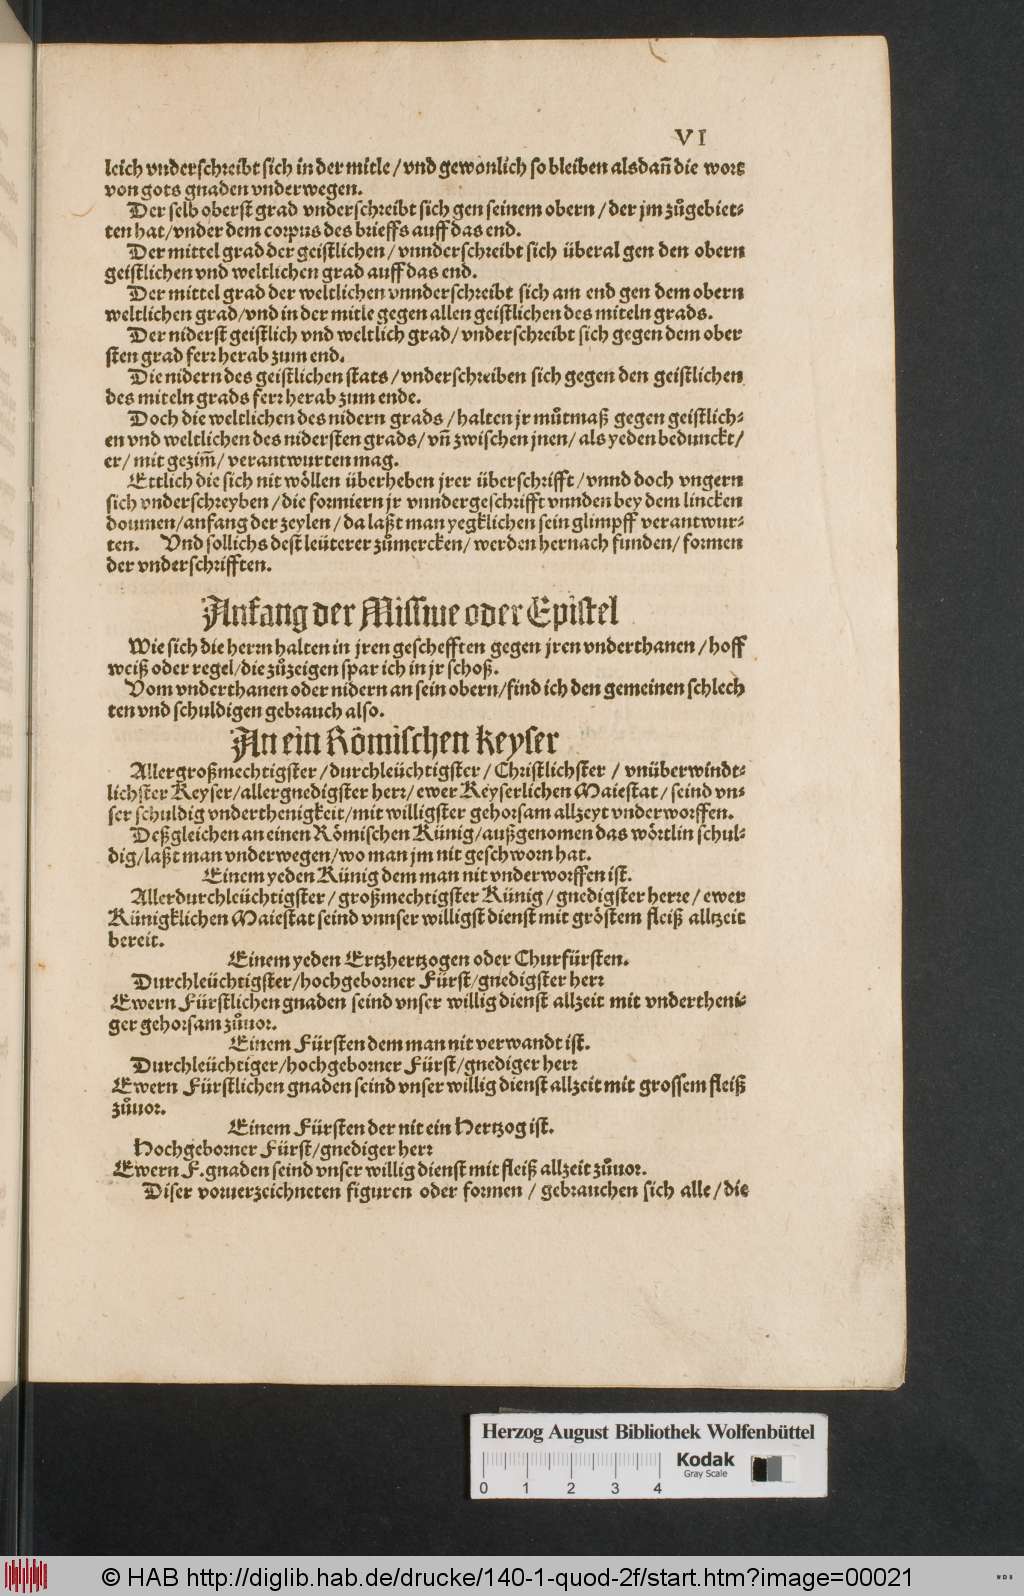 VI
leich vnderschreibt sich in der mitle / vnd gewonlich so bleiben alsdañ die wort
von gots gnaden vnderwegen.
Der selb oberst grad vnderschreibt sich gen seinem obern / der jm zůgebiet⸗
ten hat/vnder dem corpus des brieffs auff das end.
Der mittel grad der geistlichen / vnnderschreibt sich überal gen den obern
geistlichen vnd weltlichen grad auff das end.
Der mittel grad der weltlichen vnnderschreibt sich am end gen dem obern
weltlichen grad/vnd in der mitle gegen allen geistlichen des miteln grads.
Der niderst geistlich vnd weltlich grad/ vnderschreibt sich gegen dem ober
sten grad ferr herab zum end.
Die nidern des geistlichen stats / vnderschreiben sich gegen den geistlichen
des miteln grads ferr herab zum ende.
Doch die weltlichen des nidern grads / halten jr můtmaß gegen geistlich⸗
en vnd weltlichen des nidersten grads/ vñ zwischen jnen/ als yeden bedunckt/
er/ mit gezim̃/ verantwurten mag.
Ettlich die sich nit wöllen überheben jrer überschrifft / vnnd doch vngern
sich vnderschreyben / die formiern jr vnndergeschrifft vnnden bey dem lincken
doumen/anfang der zeylen / da laßt man yegklichen sein glimpff verantwur⸗
ten. Vnd sollichs dest leüterer zůmercken/ werden hernach funden/ formen
der vnderschrifften.
Anfang der Missiue oder Epistel
Wie sich die herrn halten in jren geschefften gegen jren vnderthanen / hoff
weiß oder regel/die zůzeigen spar ich in jr schoß.
Vom vnderthanen oder nidern an sein obern/find ich den gemeinen schlech
ten vnd schuldigen gebrauch also.
An ein Römischen keyser
Allergroßmechtigster / durchleüchtigster / Christlichster / vnüberwindt⸗
lichster Keyser/allergnedigster herr/ ewer Keyserlichen Maiestat / seind vn⸗
ser schuldig vnderthenigkeit/mit willigster gehorsam allzeyt vnderworffen.
Deßgleichen an einen Römischen Künig/außgenomen das wörtlin schul⸗
dig/laßt man vnderwegen/wo man jm nit geschworn hat.
Einem yeden Künig dem man nit vnderworffen ist.
Allerdurchleüchtigster / großmechtigster Künig / gnedigster herre / ewer
Künigklichen Maiestat seind vnnser willigst dienst mit gröstem fleiß alltzeit
bereit.
Einem yeden Ertzhertzogen oder Churfürsten.
Durchleüchtigster/hochgeborner Fürst/gnedigster herr
Ewern Fürstlichen gnaden seind vnser willig dienst allzeit mit vndertheni⸗
ger gehorsam zůuor.
Einem Fürsten dem man nit verwandt ist.
Durchleüchtiger/hochgeborner Fürst/gnediger herr
Ewern Fürstlichen gnaden seind vnser willig dienst allzeit mit grossem fleiß
zůuor.
Einem Fürsten der nit ein Hertzog ist.
Hochgeborner Fürst/gnediger herr
Ewern F. gnaden seind vnser willig dienst mit fleiß allzeit zůuor.
Diser voruerzeichneten figuren oder formen / gebrauchen sich alle / die
Herzog August Bibliothek Wolfenbüttel
0 1 2 3 4
Kodak
Gray Scale
© HAB http://diglib.hab.de/drucke/140-1-quod-2f/start.htm?image=00021